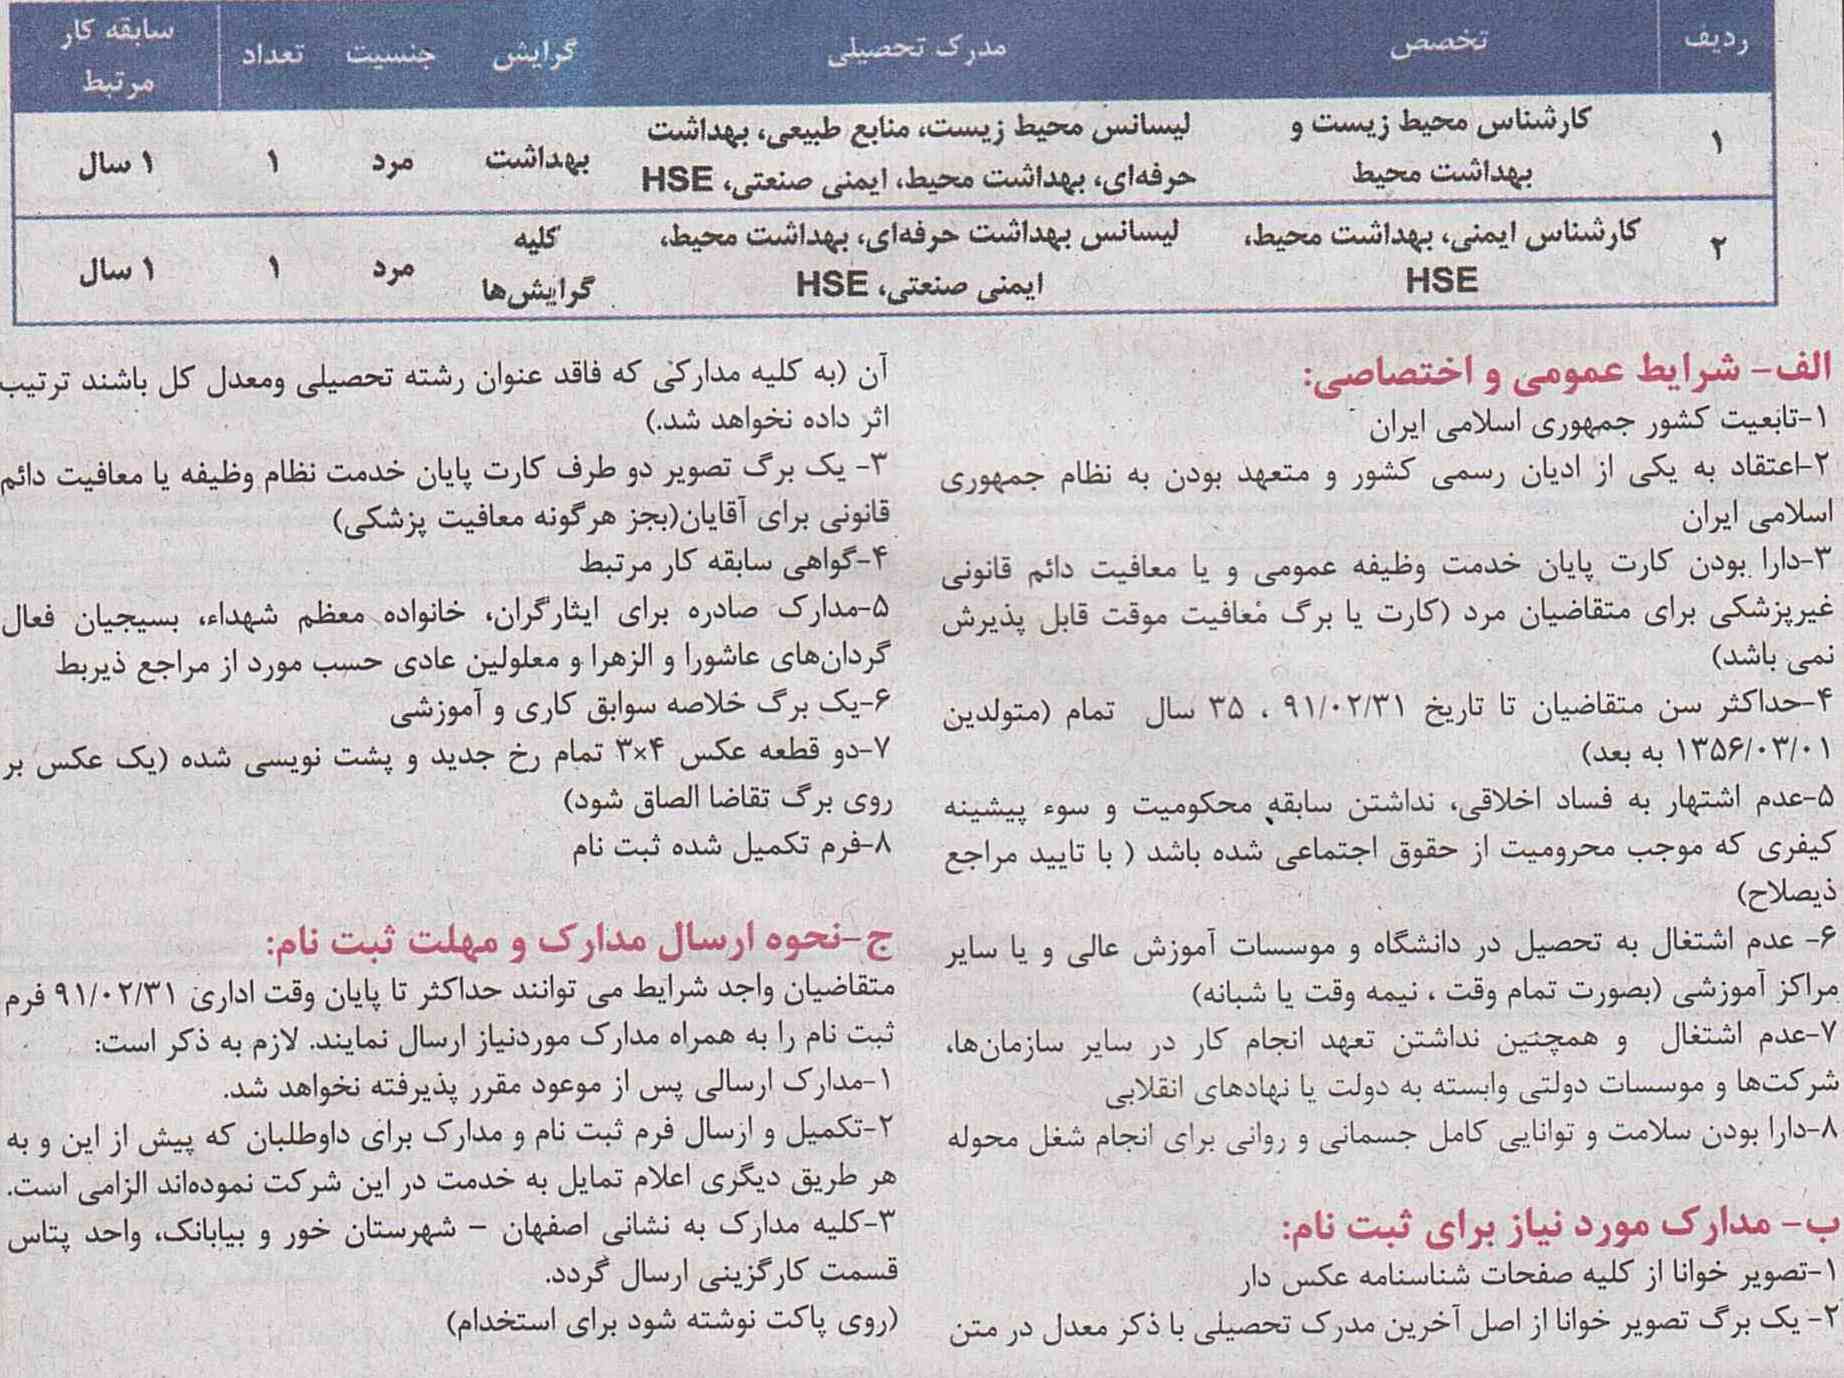 ردیف تخصص مدرک تحصیلی گرایش جنسیت تعداد سابقه کار مرتبط
۱ کارشناس محیط زیست و بهداشت محیط لیسانس محیط زیست، منابع طبیعی، بهداشت حرفه‌ای، بهداشت محیط، ایمنی صنعتی، HSE بهداشت مرد ۱ ۱ سال
۲ کارشناس ایمنی، بهداشت محیط، HSE لیسانس بهداشت حرفه‌ای، بهداشت محیط، ایمنی صنعتی، HSE کلیه گرایش‌ها مرد ۱ ۱ سال
الف- شرایط عمومی و اختصاصی:
۱-تابعیت کشور جمهوری اسلامی ایران
۲-اعتقاد به یکی از ادیان رسمی کشور و متعهد بودن به نظام جمهوری
اسلامی ایران
۳-دارا بودن کارت پایان خدمت وظیفه عمومی و یا معافیت دائم قانونی
غیرپزشکی برای متقاضیان مرد (کارت یا برگ معافیت موقت قابل پذیرش
نمی باشد)
۴-حداکثر سن متقاضیان تا تاریخ ۹۱/۰۲/۳۱ ، ۳۵ سال تمام (متولدین
۱۳۵۶/۰۳/۰۱ به بعد)
۵-عدم اشتهار به فساد اخلاقی، نداشتن سابقه محکومیت و سوء پیشینه
کیفری که موجب محرومیت از حقوق اجتماعی شده باشد ( با تایید مراجع
ذیصلاح)
۶- عدم اشتغال به تحصیل در دانشگاه و موسسات آموزش عالی و یا سایر
مراکز آموزشی (بصورت تمام وقت ، نیمه وقت یا شبانه)
۷-عدم اشتغال و همچنین نداشتن تعهد انجام کار در سایر سازمان‌ها،
شرکت‌ها و موسسات دولتی وابسته به دولت یا نهادهای انقلابی
۸-دارا بودن سلامت و توانایی کامل جسمانی و روانی برای انجام شغل محوله
ب- مدارک مورد نیاز برای ثبت نام:
۱-تصویر خوانا از کلیه صفحات شناسنامه عکس دار
۲- یک برگ تصویر خوانا از اصل آخرین مدرک تحصیلی با ذکر معدل در متن
آن (به کلیه مدارکی که فاقد عنوان رشته تحصیلی ومعدل کل باشند ترتیب
اثر داده نخواهد شد.)
۳- یک برگ تصویر دو طرف کارت پایان خدمت نظام وظیفه یا معافیت دائم
قانونی برای آقایان(بجز هرگونه معافیت پزشکی)
۴-گواهی سابقه کار مرتبط
۵-مدارک صادره برای ایثارگران، خانواده معظم شهداء، بسیجیان فعال
گردان‌های عاشورا و الزهرا و معلولین عادی حسب مورد از مراجع ذیربط
۶-یک برگ خلاصه سوابق کاری و آموزشی
۷-دو قطعه عکس ۴×۳ تمام رخ جدید و پشت نویسی شده (یک عکس بر
روی برگ تقاضا الصاق شود)
۸-فرم تکمیل شده ثبت نام
ج-نحوه ارسال مدارک و مهلت ثبت نام:
متقاضیان واجد شرایط می توانند حداکثر تا پایان وقت اداری ۹۱/۰۲/۳۱ فرم
ثبت نام را به همراه مدارک موردنیاز ارسال نمایند. لازم به ذکر است:
۱-مدارک ارسالی پس از موعود مقرر پذیرفته نخواهد شد.
۲-تکمیل و ارسال فرم ثبت نام و مدارک برای داوطلبان که پیش از این و به
هر طریق دیگری اعلام تمایل به خدمت در این شرکت نموده‌اند الزامی است.
۳-کلیه مدارک به نشانی اصفهان – شهرستان خور و بیابانک، واحد پتاس
قسمت کارگزینی ارسال گردد.
(روی پاکت نوشته شود برای استخدام)